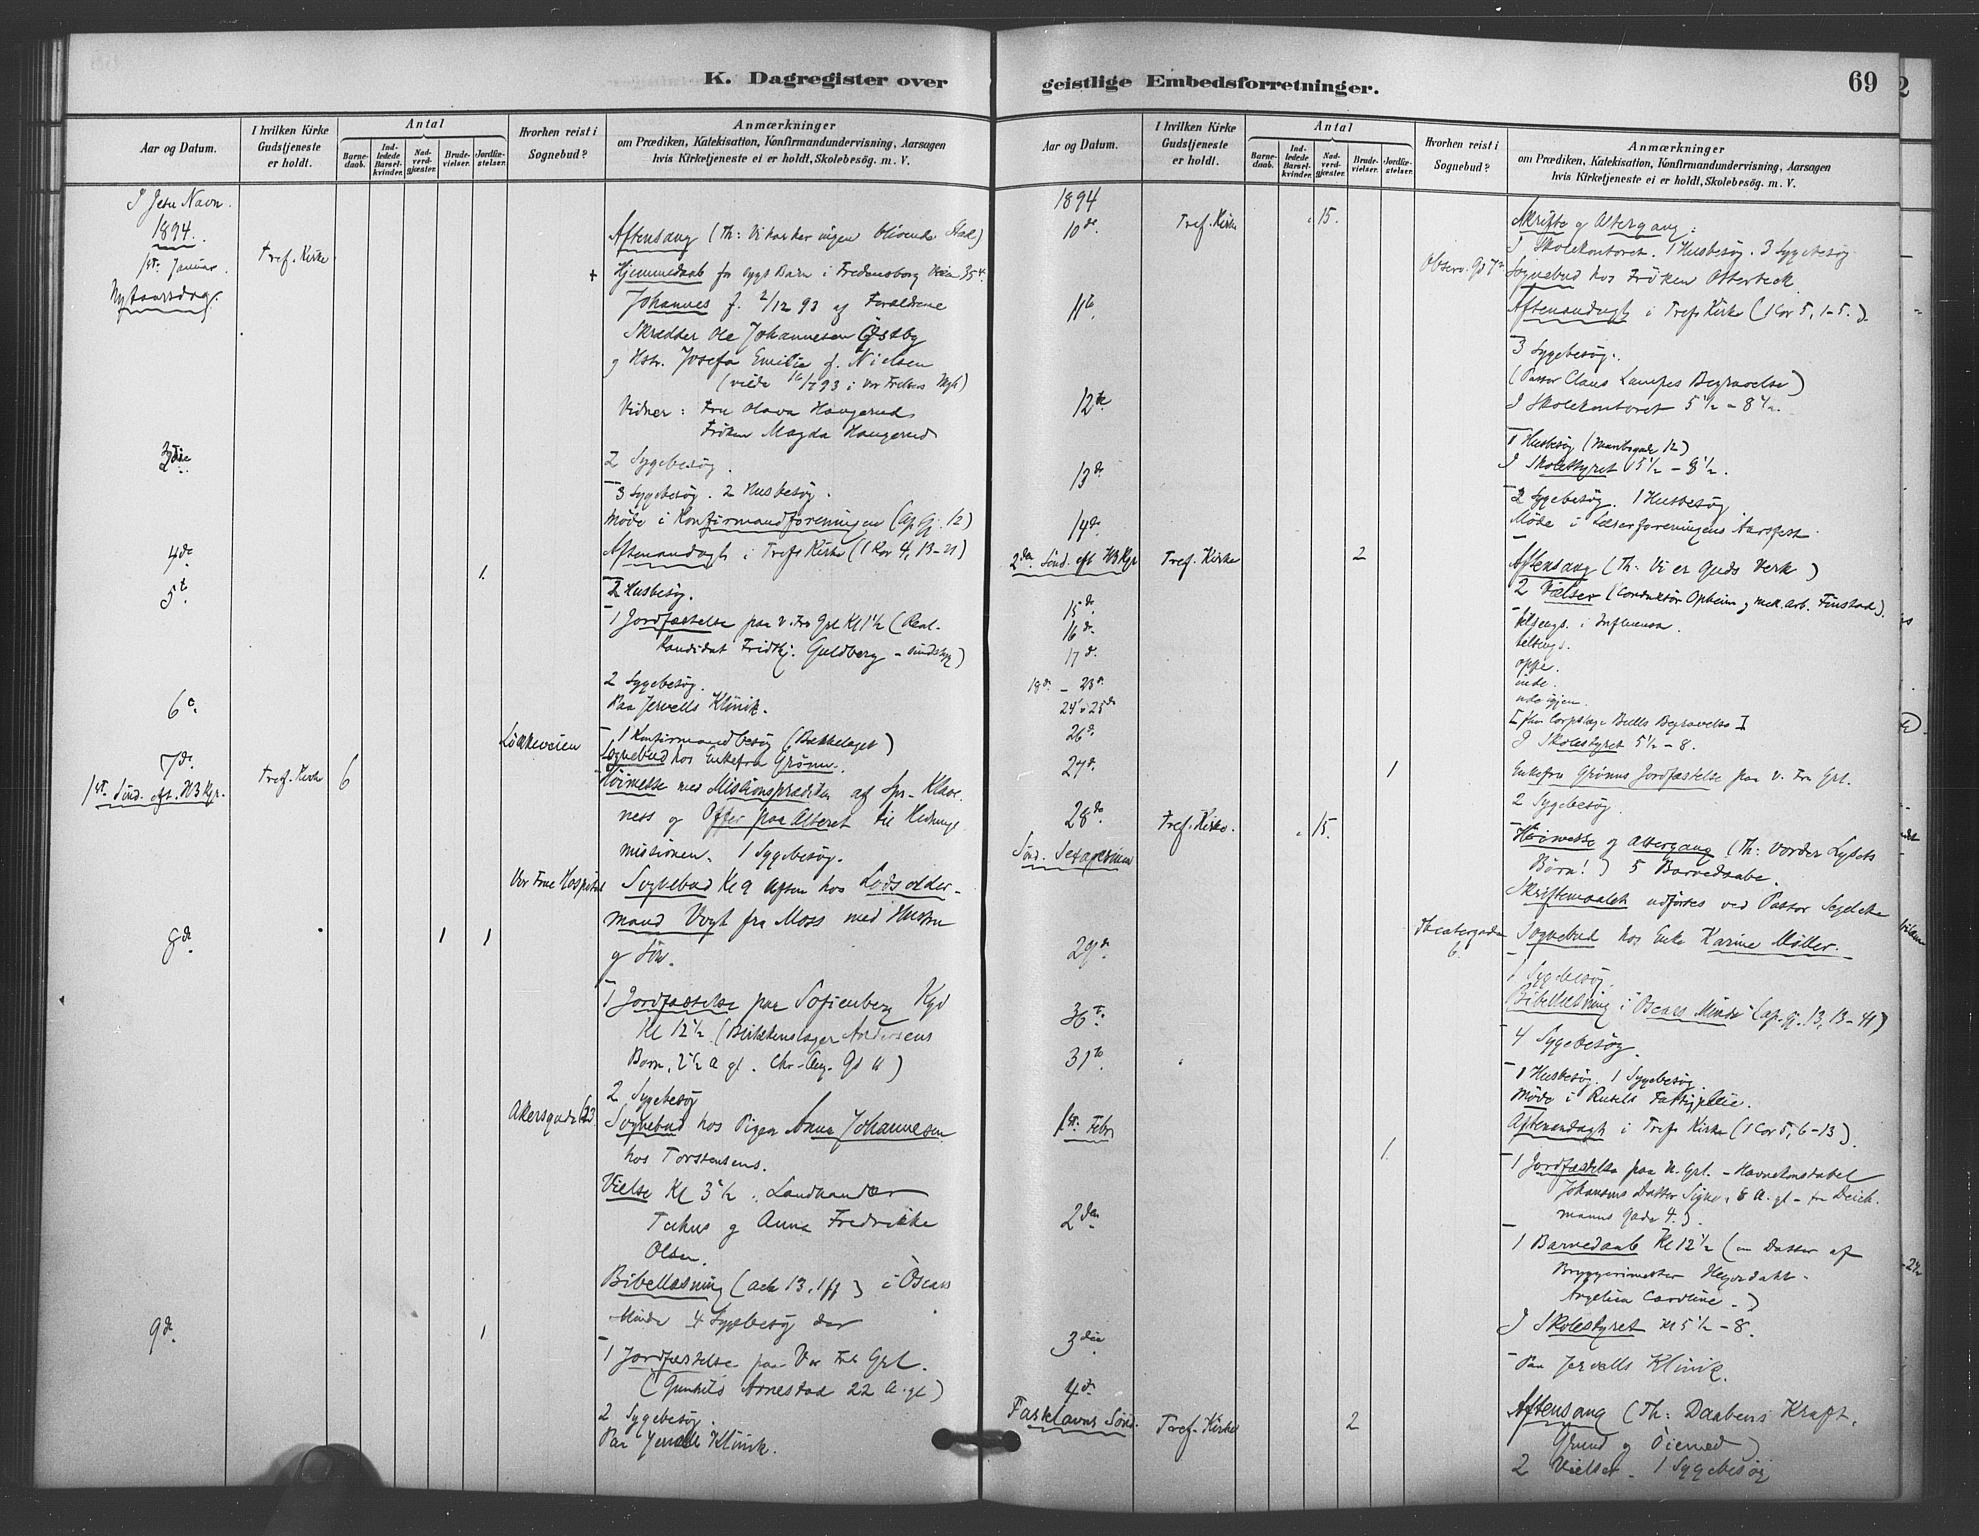 K. Dagregister over
Aar og Datum.
I hvilken Kirke Gudstjeneste er holdt.
Antal
Barne-daab.
Ind-ledede Barsel-kvinder.
Nad-verd-gjæster.
Brude-vielser.
Jordfæ-stelser.
Hvorhen reist i Sognebud?
Anmærkninger
om Prædiken, Katekisation, Konfirmandundervisning, Aarsagen
hvis Kirketjeneste ei er holdt, Skolebesøg. m. V.
I Jesu Navn.
1894.
1ste Januar.
Nytaarsdag.
Tref. Kirke
Aftensang (Th: Vi har her ingen blivende Stad)
+ Hjemmedaab for sygt Barn i Fredensborg Veien 35 4
Johannes f. 2/12 93 af Forældrene
Skrædder Ole Johannesen Østby
og Hstr. Josefa Emilie f. Nielsen
Vidner: Fru Olava Haugerud
Frøken Magda Haugerud
3die
2 Sygebesøg.
3 Sygebesøg. 2 Husbesøg.
Møde i Konfirmandforeningen (Ap. Gj. 12)
4de
Aftenandagt i Trefs Kirke (1 Kor 4, 13-21)
5t
1.
2 Husbesøg.
1 Jordfæstelse paa V. Fr. Grl Kl 1½ (Real-
Kandidat Fridtj. Guldberg - sindssyg)
2 Sygebesøg.
6e
Paa Jervells Klinik.
1 Konfirmandbesøg (Bækkelaget)
7de
1ste Sønd. eft. H3Kgr.
Tref. Kirke
6
Løkkeveien
Sognebud hos Enkefru Grønn.
Høimesse med Missionsprædiken af Spr. Klave-
ness og Offer paa Alteret til Hedninge
missionen. 1 Sygebesøg.
Vor Frue Hospital
Sognebud Kl 9 Aften hos Lodsolder-
mand Vogt fra Moss med Hustru
og Søn.
8de
1
1
1 Jordfæstelse paa Sofienberg Kgd
Kl 12½ (Blikkenslager Andersens
Barn, 2½ A gl. Chr. Aug. Gd 11)
2 Sygebesøg
Akersgade 63
Sognebud hos Pigen Anna Johannesen
hos Torstensens.
Vielse Kl 3½. Landhandler
og Anna Fredrikke
Olsen.
Bibellæsning (Act 13, 1 ff) i Oscars
Minde 4 Sygebesøg der
9de
1
1 Jordfæstelse paa Vor Frls Grl.
(Gunhild Arnestad 22 A. gl)
2 Sygebesøg.
Paa Jervells Klinik.
geistlige Embedsforretninger.
69
Aar og Datum.
I hvilken Kirke Gudstjeneste er holdt.
Antal
Barne-daab.
Ind-ledede Barsel-kvinder.
Nad-verd-gjæster.
Brude-vielser.
Jordfæ-stelser.
Hvorhen reist i Sognebud?
Anmærkninger
om Prædiken, Katekisation, Konfirmandundervisning, Aarsagen
hvis Kirketjeneste ei er holdt, Skolebesøg. m. V.
1894
10de
Tref. Kirke
15.
Skrifte og Altergang.
I Skolekontoret. 1 Husbesøg. 3 Sygebesøg
Observ. Gd 7
Sognebud hos Frøken Otterbeck.
11te
Aftenandagt i Trefs Kirke (1 Cor 5, 1-5.)
3 Sygebesøg.
(Pastor Claus Begravelse)
12te
I Skolekontoret 5½ - 8½.
1 Husbesøg
13de
I Skolestyret 5½ - 8½.
2 Sygebesøg. 1 Husbesøg
14de
2den Sønd. eft H3Kgr
Tref. Kirke
2
Møde i Læserforeningens Aarsfest.
Aftensang (Th: Vi er Guds Verk)
2 Vielser (Conduktør Opheim og mek. arb. Finstad).
15de
tilsengs. i Influensa.
16de
tilsengs.
17de
oppe.
18de - 23de
inde.
24 & 25de
ude igjen.
26de
Bulls Begravelse
I Skolestyret 5½ - 8.
27de
1
Enkefru Grønns Jordfæstelse paa V. Fr Grl.
2 Sygebesøg
28de
Sønd. Sexagesima
Tref. Kirke.
15.
Høimesse og Altergang (Th: Vorder Lysets
Børn!) 5 Barnedaabe.
Skriftemaalet udførtes ved Pastor
29de
Theatergaden 6.
Sognebud hos Enke Karine Møller.
1 Sygebesøg.
Bibellæsning i Oscars Minde (Ap. Gj. 13, 13-41)
30te
4 Sygebesøg.
31te
1 Husbesøg. 1 Sygebesøg.
Møde i Fattigpleie.
1ste Febr
Aftenandagt i Trefs Kirke (1 Cor 5, 6-13)
1.
1 Jordfæstelse paa N. Grl. - Havnekonstabel
Johansens Datter Signe, 8 A. gl - fra Deich-
manns Gade 4.).
2den
1 Barnedaab Kl 12½ (en Datter af
Bryggerimester
Angelica Caroline -)
3die
I Skolestyret Kl 5½ - 8.
Paa Jervells Klinik.
4de
Fastelavns Sønd.
Tref. Kirke
2
Aftensang (Th: Daabens Kraft,
Grund og Øiemed)
2 Vielser. 1 Sygebesøg